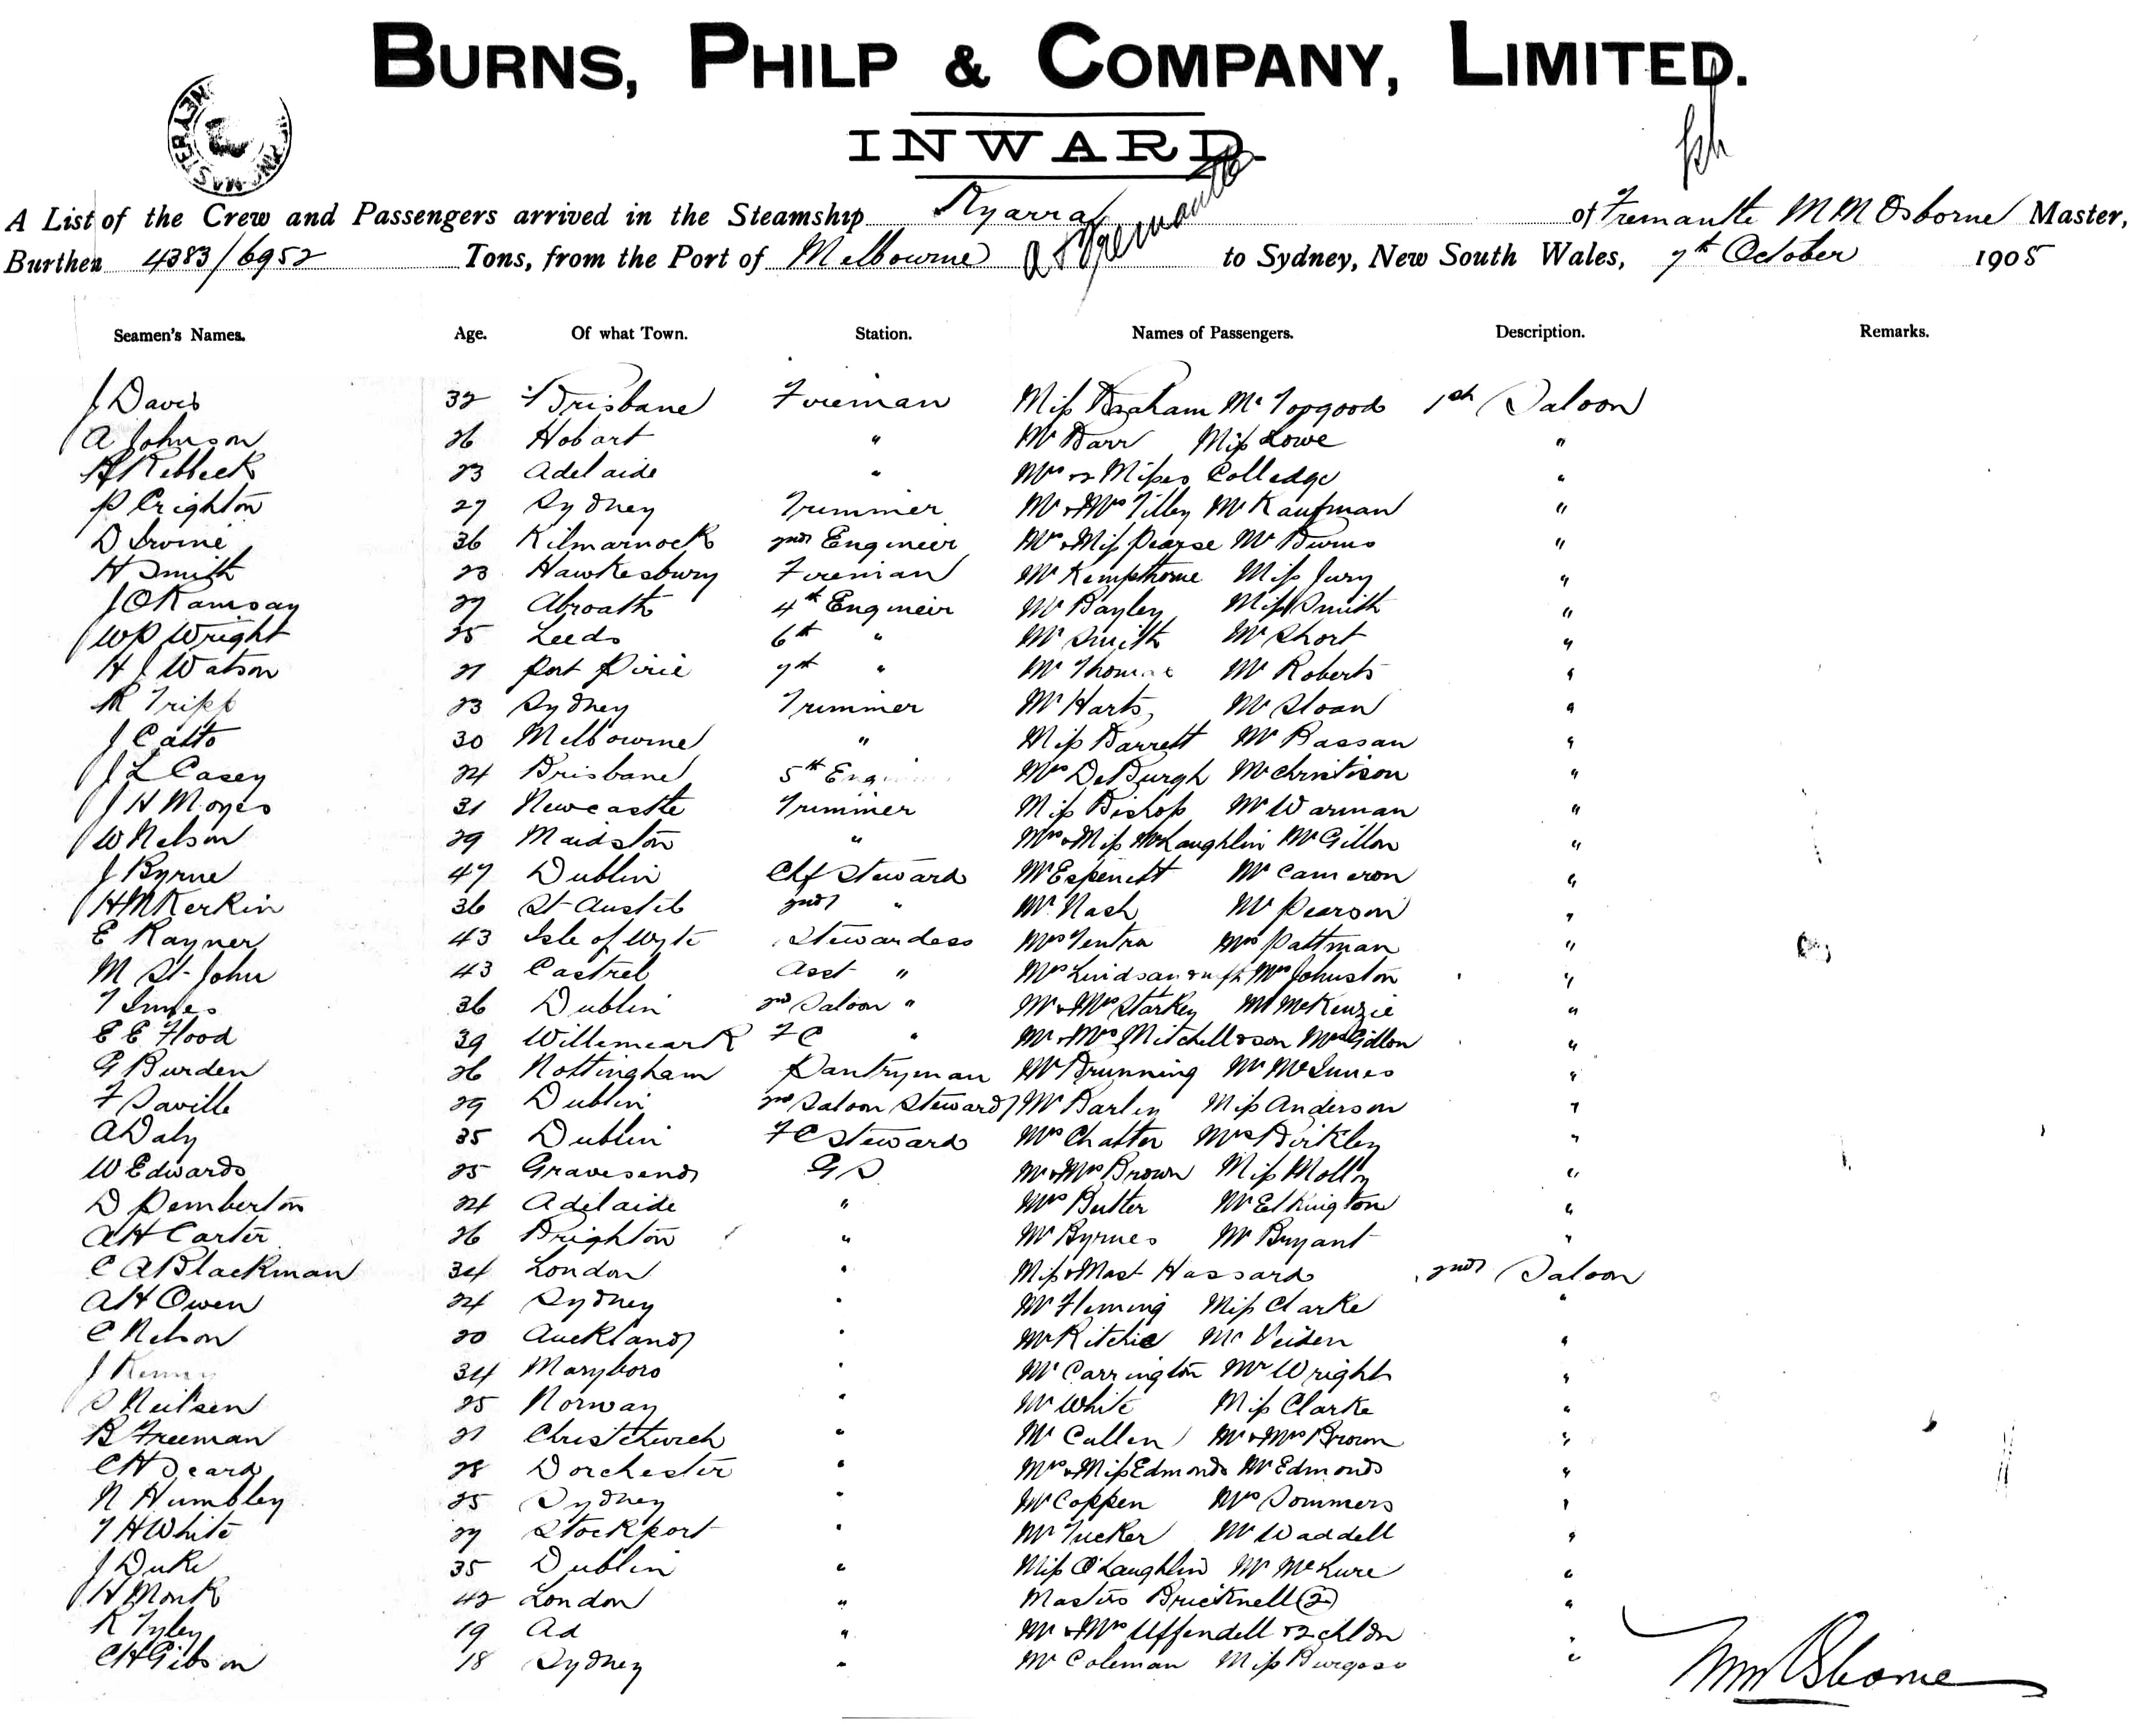 BURNS, PHILP & COMPANY, LIMITED.
INWARD.
A List of the Crew and Passengers arrived in the Steamship Kyarra of Fremantle M M Osborne Master,
Burthen 4383/6952 Tons, from the Port of Melbourne & Fremantle to Sydney, New South Wales, 7th October 1905
Seamen's Names. Age. Of what Town. Station. Names of Passengers. Description. Remarks.
J Davis 32 Brisbane Fireman Miss Mr Topgood 1st Saloon
A Johnson 26 Hobart " Mr Barr Miss Lowe "
H Rebbeck 23 Adelaide " Mrs & 2 Misses Colledge "
P Crighton 27 Sydney Trimmer Mr & Mrs Tilley Mr Kaufman "
D Irvine 36 Kilmarnock 2nd Engineer Mrs & Miss Pearse Mr Burns "
H Smith 23 Hawkesbury Fireman Mr Kempthorne Miss Jury "
J O Ramsay 27 Abroath 4th Engineer Mr Bayley Miss Smith "
W P Wright 25 Leeds 6th " Mr Smith Mr Short "
H J Watson 21 Port Pirie 7th " Mr Thomas Mr Roberts "
R Tripp 23 Sydney Trimmer Mr Harts Mr Sloan "
J Catto 30 Melbourne " Miss Barrett Mr Bassan "
J L Casey 24 Brisbane 5th Mrs DeBurgh Mr Christison "
J H Moyes 31 Newcastle Trimmer Miss Bishop Mr Warman "
W Nelson 29 Maidston " Mrs & Miss McLaughlin Mr Gillon "
J Byrne 47 Dublin Chf Steward Mr Espenett Mr Cameron "
H McKerkin 36 St Austell 2nd " Mr Nash Mr Pearson "
E Rayner 43 Isle of Wyte Stewardess Mrs Ventra Mrs Pattman "
M St John 43 Castrel Asst " Mrs Lindsay Mrs Johnston "
T Innes 36 Dublin 2nd Saloon " Mr & Mrs Starkey Mr McKenzie "
E E Flood 39 F C " Mr & Mrs Mitchell & son Mrs Gillon "
G Burden 26 Nottingham Pantryman Mr Brunning Mr McInnes "
F Saville 29 Dublin 2nd Saloon Steward Mr Barlin Miss Anderson "
A Daly 35 Dublin F C Steward Mrs Chatter Mrs Birkley "
W Edwards 25 Gravesend G S Mr & Mrs Brown Miss Molloy "
D Pemberton 24 Adelaide " Mrs Butler Mr Elkington "
A H Carter 26 Brighton " Mr Byrnes Mr Bryant "
C A Blackman 34 London " Miss & Mast Hassard 2nd Saloon
A H Owen 24 Sydney " Mr Fleming Miss Clarke "
C Nelson 20 Auckland " Mr Ritchie Mr Veiden "
J Kenny 34 Maryboro " Mr Carrington Mr Wright "
S Neilsen 25 Norway " Mr White Miss Clarke "
B Freeman 21 Christchurch " Mr Cullen Mr & Mrs Brown "
C H Deard 28 Dorchester " Mrs & Miss Edmonds Mr Edmonds "
N Humbley 25 Sydney " Mr Coppen Mrs Sommers "
T H White 27 Stockport " Mr Tucker Mr Waddell "
J Duke 35 Dublin " Miss O'Laughlin Mr McLure "
H Monk 42 London " Masters Bricknell (2) "
R Tyley 19 Ad " Mr & Mrs Uffendell & 2 chldn "
C H Gibson 18 Sydney " Mr Coleman Miss Burgess "
M M Osborne